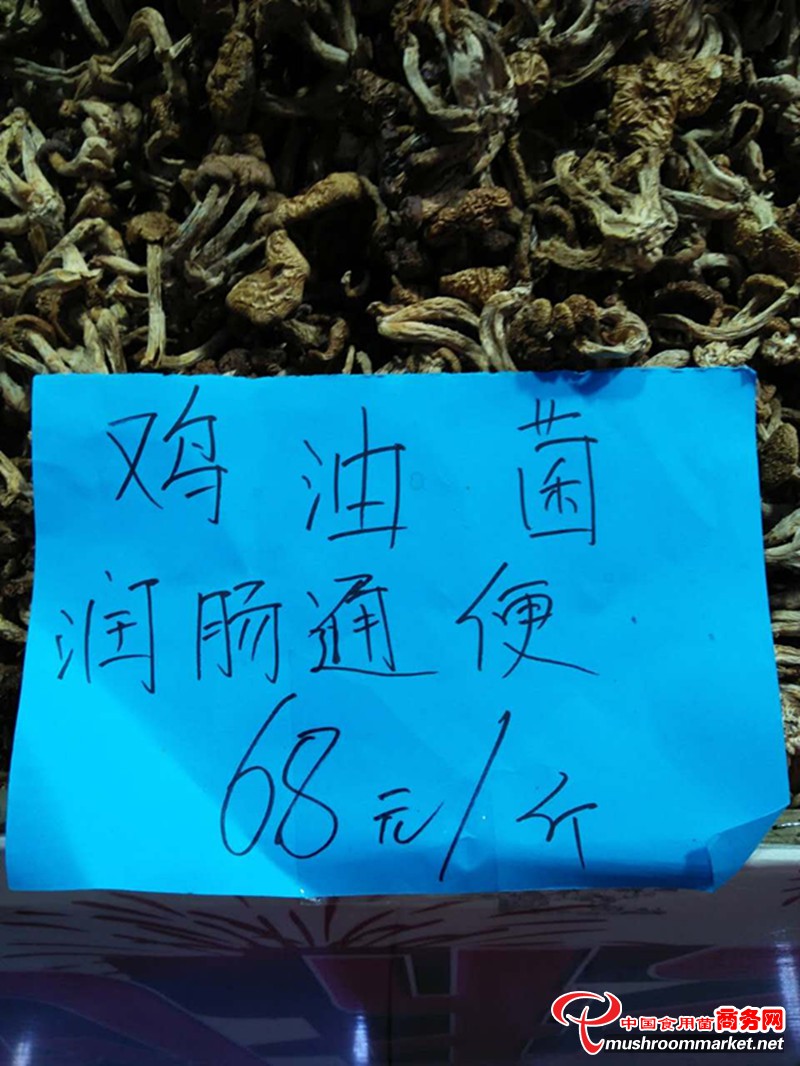 鸡油菌
润肠通便
68元/斤
中国食用菌商务网
mushroommarket.net